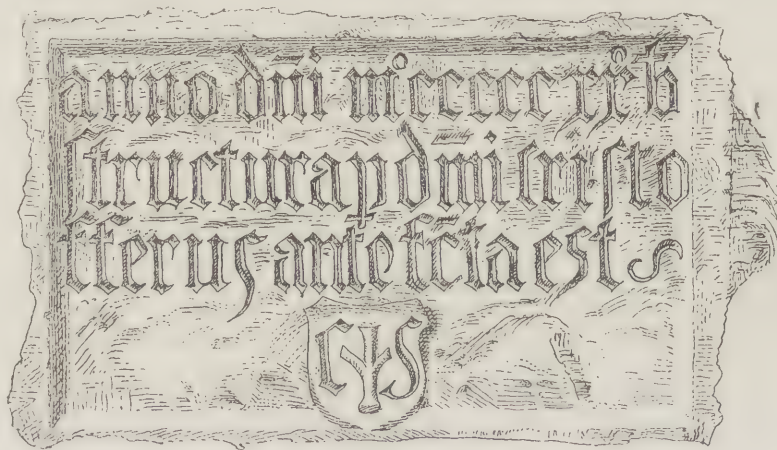 anno dn̄i m°cccccxx°b
structura p dn̄m cristo
fferus ante fcta est
C S